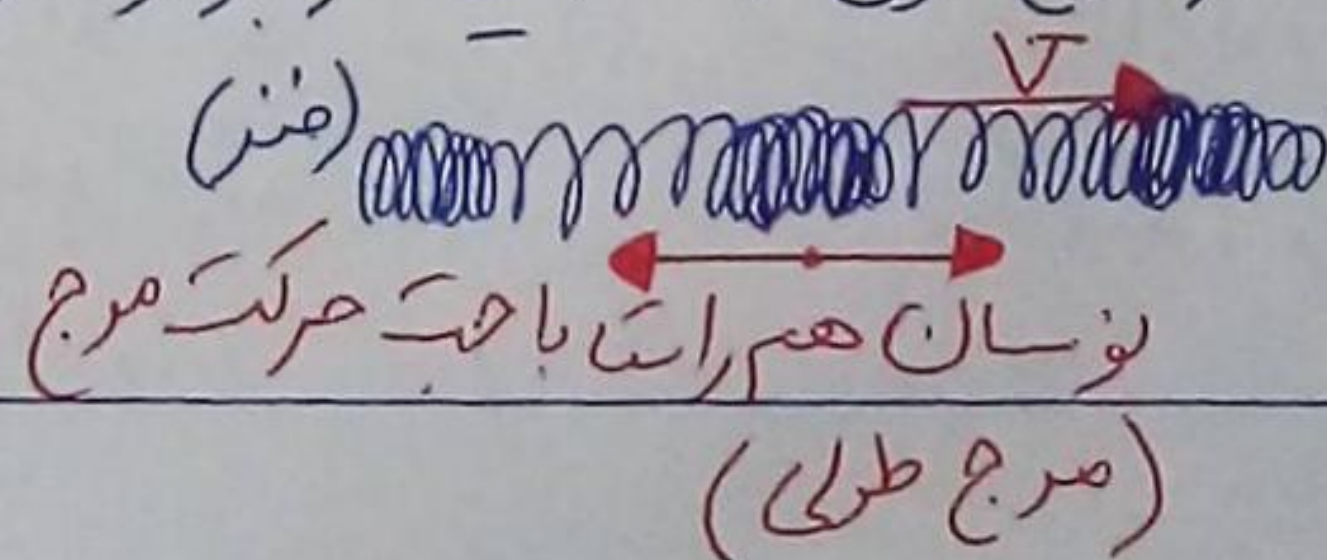 V
(فنر)
نوسان هم راستا با جهت حرکت موج
(موج طولی)